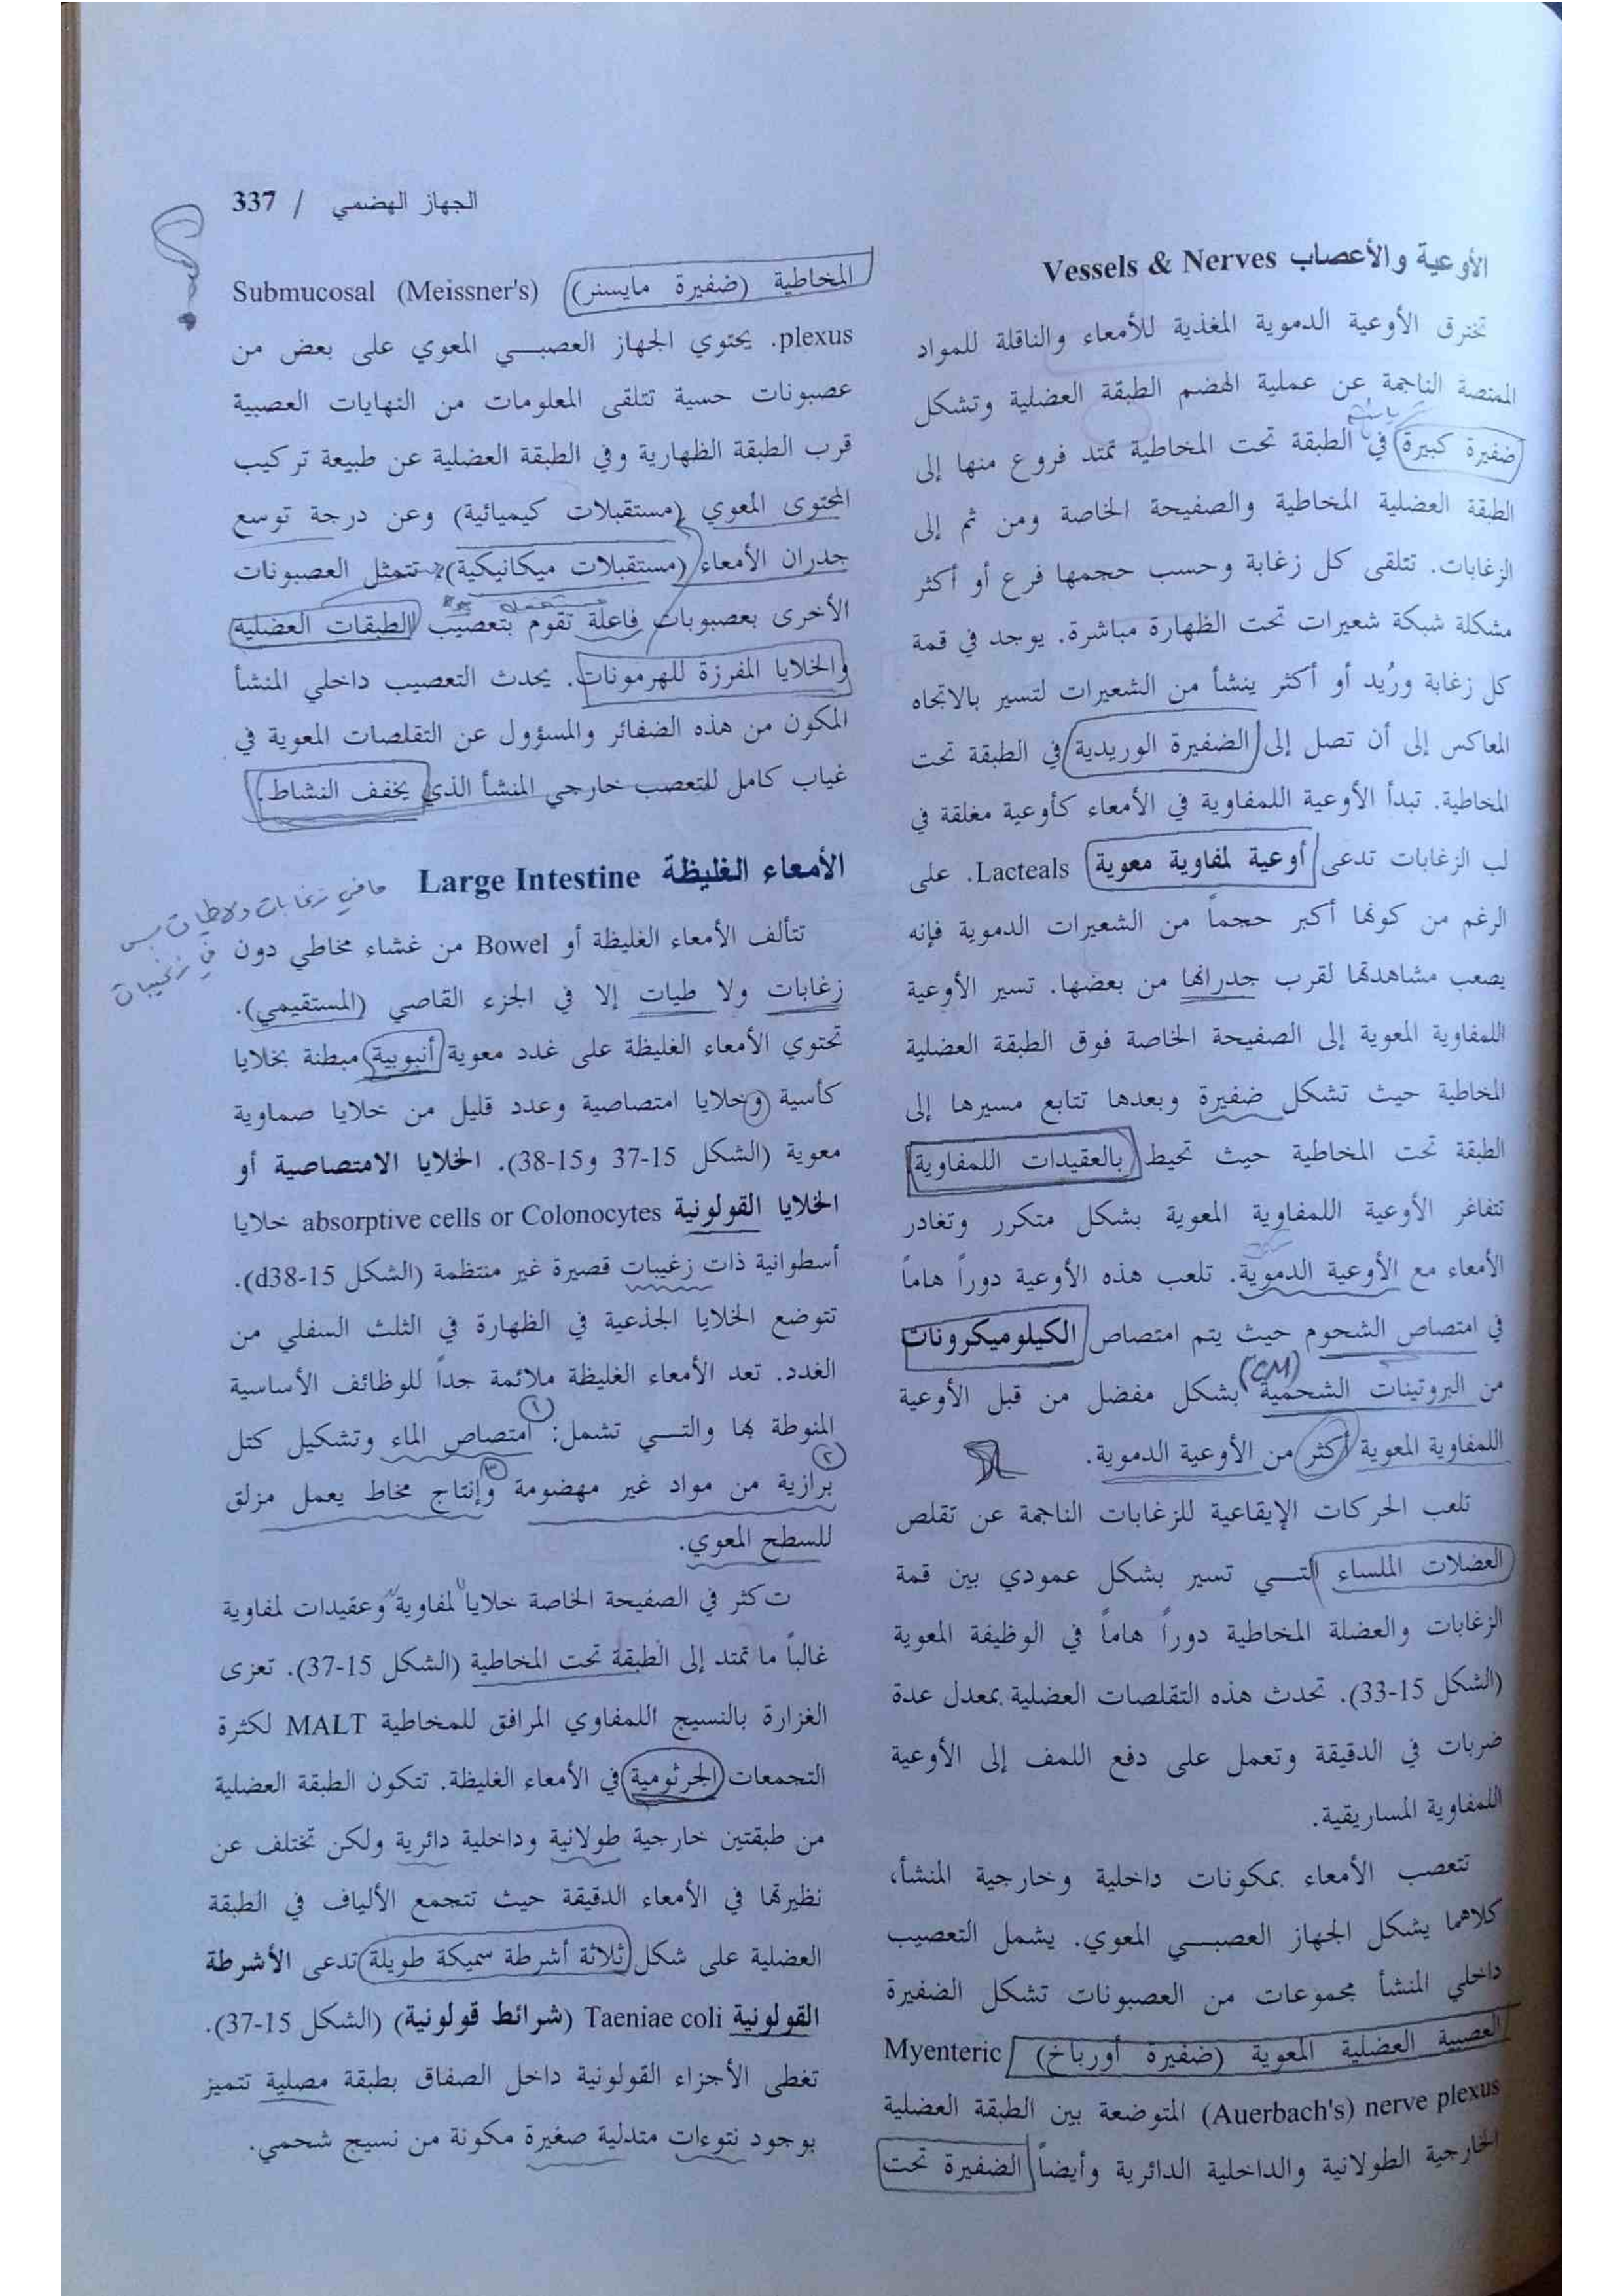 الجهاز الهضمي / 337
الأوعية والأعصاب Vessels & Nerves
تخترق الأوعية الدموية المغذية للأمعاء والناقلة للمواد
الممتصة الناجمة عن عملية الهضم الطبقة العضلية وتشكل
ضفيرة كبيرة في الطبقة تحت المخاطية تمتد فروع منها إلى
الطبقة العضلية المخاطية والصفيحة الخاصة ومن ثم إلى
الزغابات. تتلقى كل زغابة وحسب حجمها فرع أو أكثر
مشكلة شبكة شعيرات تحت الظهارة مباشرة. يوجد في قمة
كل زغابة ورُيد أو أكثر ينشأ من الشعيرات لتسير بالاتجاه
المعاكس إلى أن تصل إلى الضفيرة الوريدية في الطبقة تحت
المخاطية. تبدأ الأوعية اللمفاوية في الأمعاء كأوعية مغلقة في
لب الزغابات تدعى أوعية لمفاوية معوية Lacteals. على
الرغم من كونها أكبر حجماً من الشعيرات الدموية فإنه
يصعب مشاهدتها لقرب جدرانها من بعضها. تسير الأوعية
اللمفاوية المعوية إلى الصفيحة الخاصة فوق الطبقة العضلية
المخاطية حيث تشكل ضفيرة وبعدها تتابع مسيرها إلى
الطبقة تحت المخاطية حيث تحيط بالعقيدات اللمفاوية
تتفاغر الأوعية اللمفاوية المعوية بشكل متكرر وتغادر
الأمعاء مع الأوعية الدموية. تلعب هذه الأوعية دوراً هاماً
في امتصاص الشحوم حيث يتم امتصاص الكيلوميكرونات
(CM)
من البروتينات الشحمية بشكل مفضل من قبل الأوعية
اللمفاوية المعوية أكثر من الأوعية الدموية.
تلعب الحركات الإيقاعية للزغابات الناجمة عن تقلص
العضلات الملساء التي تسير بشكل عمودي بين قمة
الزغابات والعضلة المخاطية دوراً هاماً في الوظيفة المعوية
(الشكل 15-33). تحدث هذه التقلصات العضلية بمعدل عدة
ضربات في الدقيقة وتعمل على دفع اللمف إلى الأوعية
اللمفاوية المساريقية.
تتعصب الأمعاء بمكونات داخلية وخارجية المنشأ،
كلاهما يشكل الجهاز العصبي المعوي. يشمل التعصيب
داخلي المنشأ مجموعات من العصبونات تشكل الضفيرة
العصبية العضلية المعوية (ضفيرة أورباخ) Myenteric
(Auerbach's) nerve plexus المتوضعة بين الطبقة العضلية
الخارجية الطولانية والداخلية الدائرية وأيضاً الضفيرة تحت
المخاطية (ضفيرة مايسنر) Submucosal (Meissner's)
plexus. يحتوي الجهاز العصبي المعوي على بعض من
عصبونات حسية تتلقى المعلومات من النهايات العصبية
قرب الطبقة الظهارية وفي الطبقة العضلية عن طبيعة تركيب
المحتوى المعوي (مستقبلات كيميائية) وعن درجة توسع
جدران الأمعاء (مستقبلات ميكانيكية). تتمثل العصبونات
الأخرى بعصبوبات فاعلة تقوم بتعصيب الطبقات العضلية
والخلايا المفرزة للهرمونات. يحدث التعصيب داخلي المنشأ
المكون من هذه الضفائر والمسؤول عن التقلصات المعوية في
غياب كامل للتعصب خارجي المنشأ الذي يخفف النشاط.
الأمعاء الغليظة Large Intestine
ما في زغابات ولا طيات بس
في زغيبات
تتألف الأمعاء الغليظة أو Bowel من غشاء مخاطي دون
زغابات ولا طيات إلا في الجزء القاصي (المستقيمي).
تحتوي الأمعاء الغليظة على غدد معوية أنبوبية مبطنة بخلايا
كأسية وخلايا امتصاصية وعدد قليل من خلايا صماوية
معوية (الشكل 15-37 و15-38). الخلايا الامتصاصية أو
الخلايا القولونية absorptive cells or Colonocytes خلايا
أسطوانية ذات زغيبات قصيرة غير منتظمة (الشكل 15-d38).
تتوضع الخلايا الجذعية في الظهارة في الثلث السفلي من
الغدد. تعد الأمعاء الغليظة ملائمة جداً للوظائف الأساسية
المنوطة بها والتي تشمل: ١ امتصاص الماء وتشكيل كتل
٢ برازية من مواد غير مهضومة ٣ وإنتاج مخاط يعمل مزلق
للسطح المعوي.
تكثر في الصفيحة الخاصة خلايا لمفاوية وعقيدات لمفاوية
غالباً ما تمتد إلى الطبقة تحت المخاطية (الشكل 15-37). تعزى
الغزارة بالنسيج اللمفاوي المرافق للمخاطية MALT لكثرة
التجمعات الجرثومية في الأمعاء الغليظة. تتكون الطبقة العضلية
من طبقتين خارجية طولانية وداخلية دائرية ولكن تختلف عن
نظيرتها في الأمعاء الدقيقة حيث تتجمع الألياف في الطبقة
العضلية على شكل ثلاثة أشرطة سميكة طويلة تدعى الأشرطة
القولونية Taeniae coli (شرائط قولونية) (الشكل 15-37).
تغطى الأجزاء القولونية داخل الصفاق بطبقة مصلية تتميز
بوجود نتوءات متدلية صغيرة مكونة من نسيج شحمي.